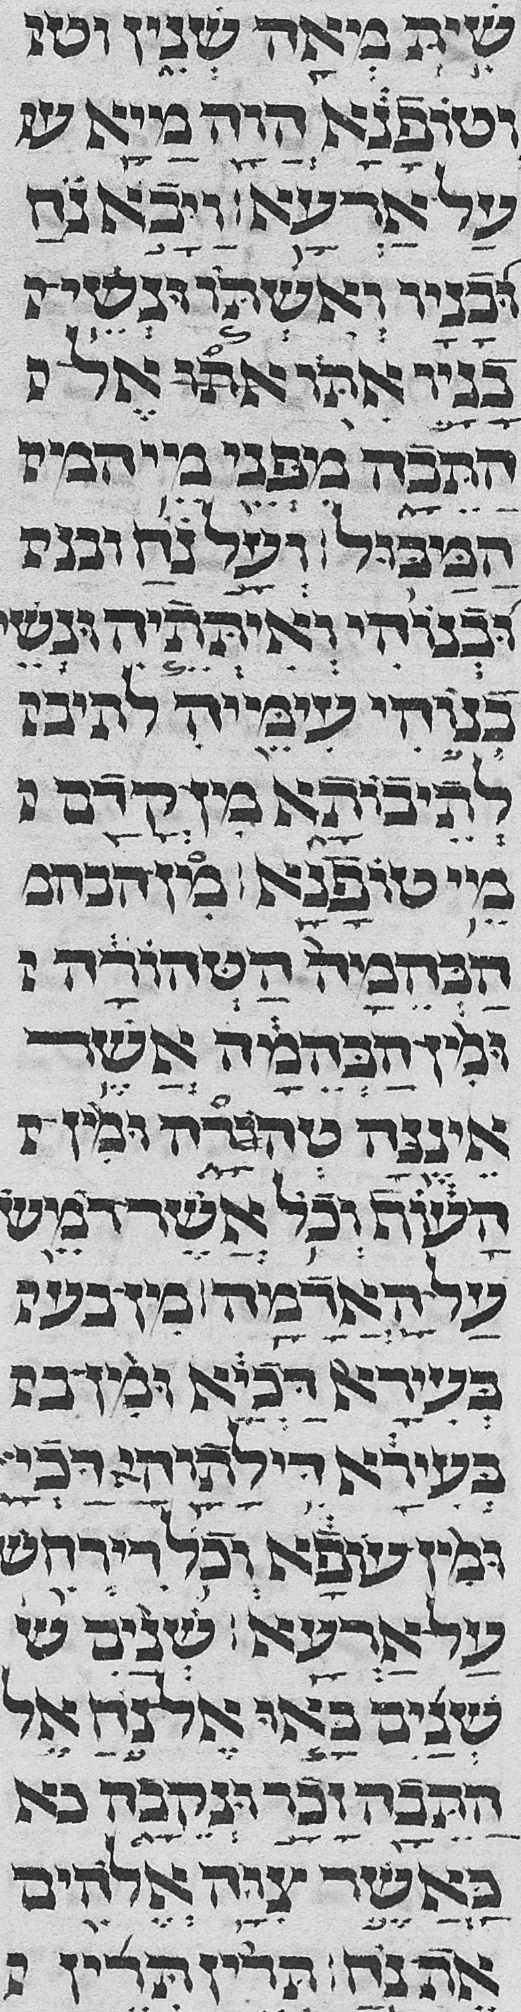 שִׁית מְאָה שְׁנִין וטו
וְטוֹפָנָא הֲוָה מַיָא ע
עַל אַרְעָא׃ וַיָּבֹא נֹחַ
וּבָנָיו וְאִשְׁתּוֹ וּנְשֵׁי
בָנָיו אִתּוֹ אֶל
הַתֵּבָה מִפְּנֵי מֵי המ
הַמַּבּוּל׃ וְעַל נֹחַ ובנ
וּבְנוֹהִי וְאִיתְּתֵיהּ וּנְשֵׁי
בְנוֹהִי עִימֵּיהּ לתיב
לְתֵיבוֹתָא מִן קֳדָם
מֵי טוֹפָנָא׃ מִן הבהמ
הַבְּהֵמָה הַטְּהוֹרָה
וּמִן הַבְּהֵמָה אֲשֶׁר
אֵינֶנָּה טְהֹרָה וּמִן
הָעוֹף וְכֹל אֲשֶׁר רֹמֵשׂ
עַל הָאֲדָמָה׃ מִן בעי
בְּעִירָא דַּכְיָא וּמִן ב
בְּעִירָא דִּילָתוֹהִי דַּכְי
וּמִן עוֹפָא וְכֹל דִּירְחֵשׁ
עַל אַרְעָא׃ שְׁנַיִם ש
שְׁנַיִם בָּאוּ אֶל נֹחַ אֶל
הַתֵּבָה זָכָר וּנְקֵבָה כא
כַּאֲשֶׁר צִוָּה אֱלֹהִים
אֶת נֹחַ׃ תְּרֵין תְּרֵין